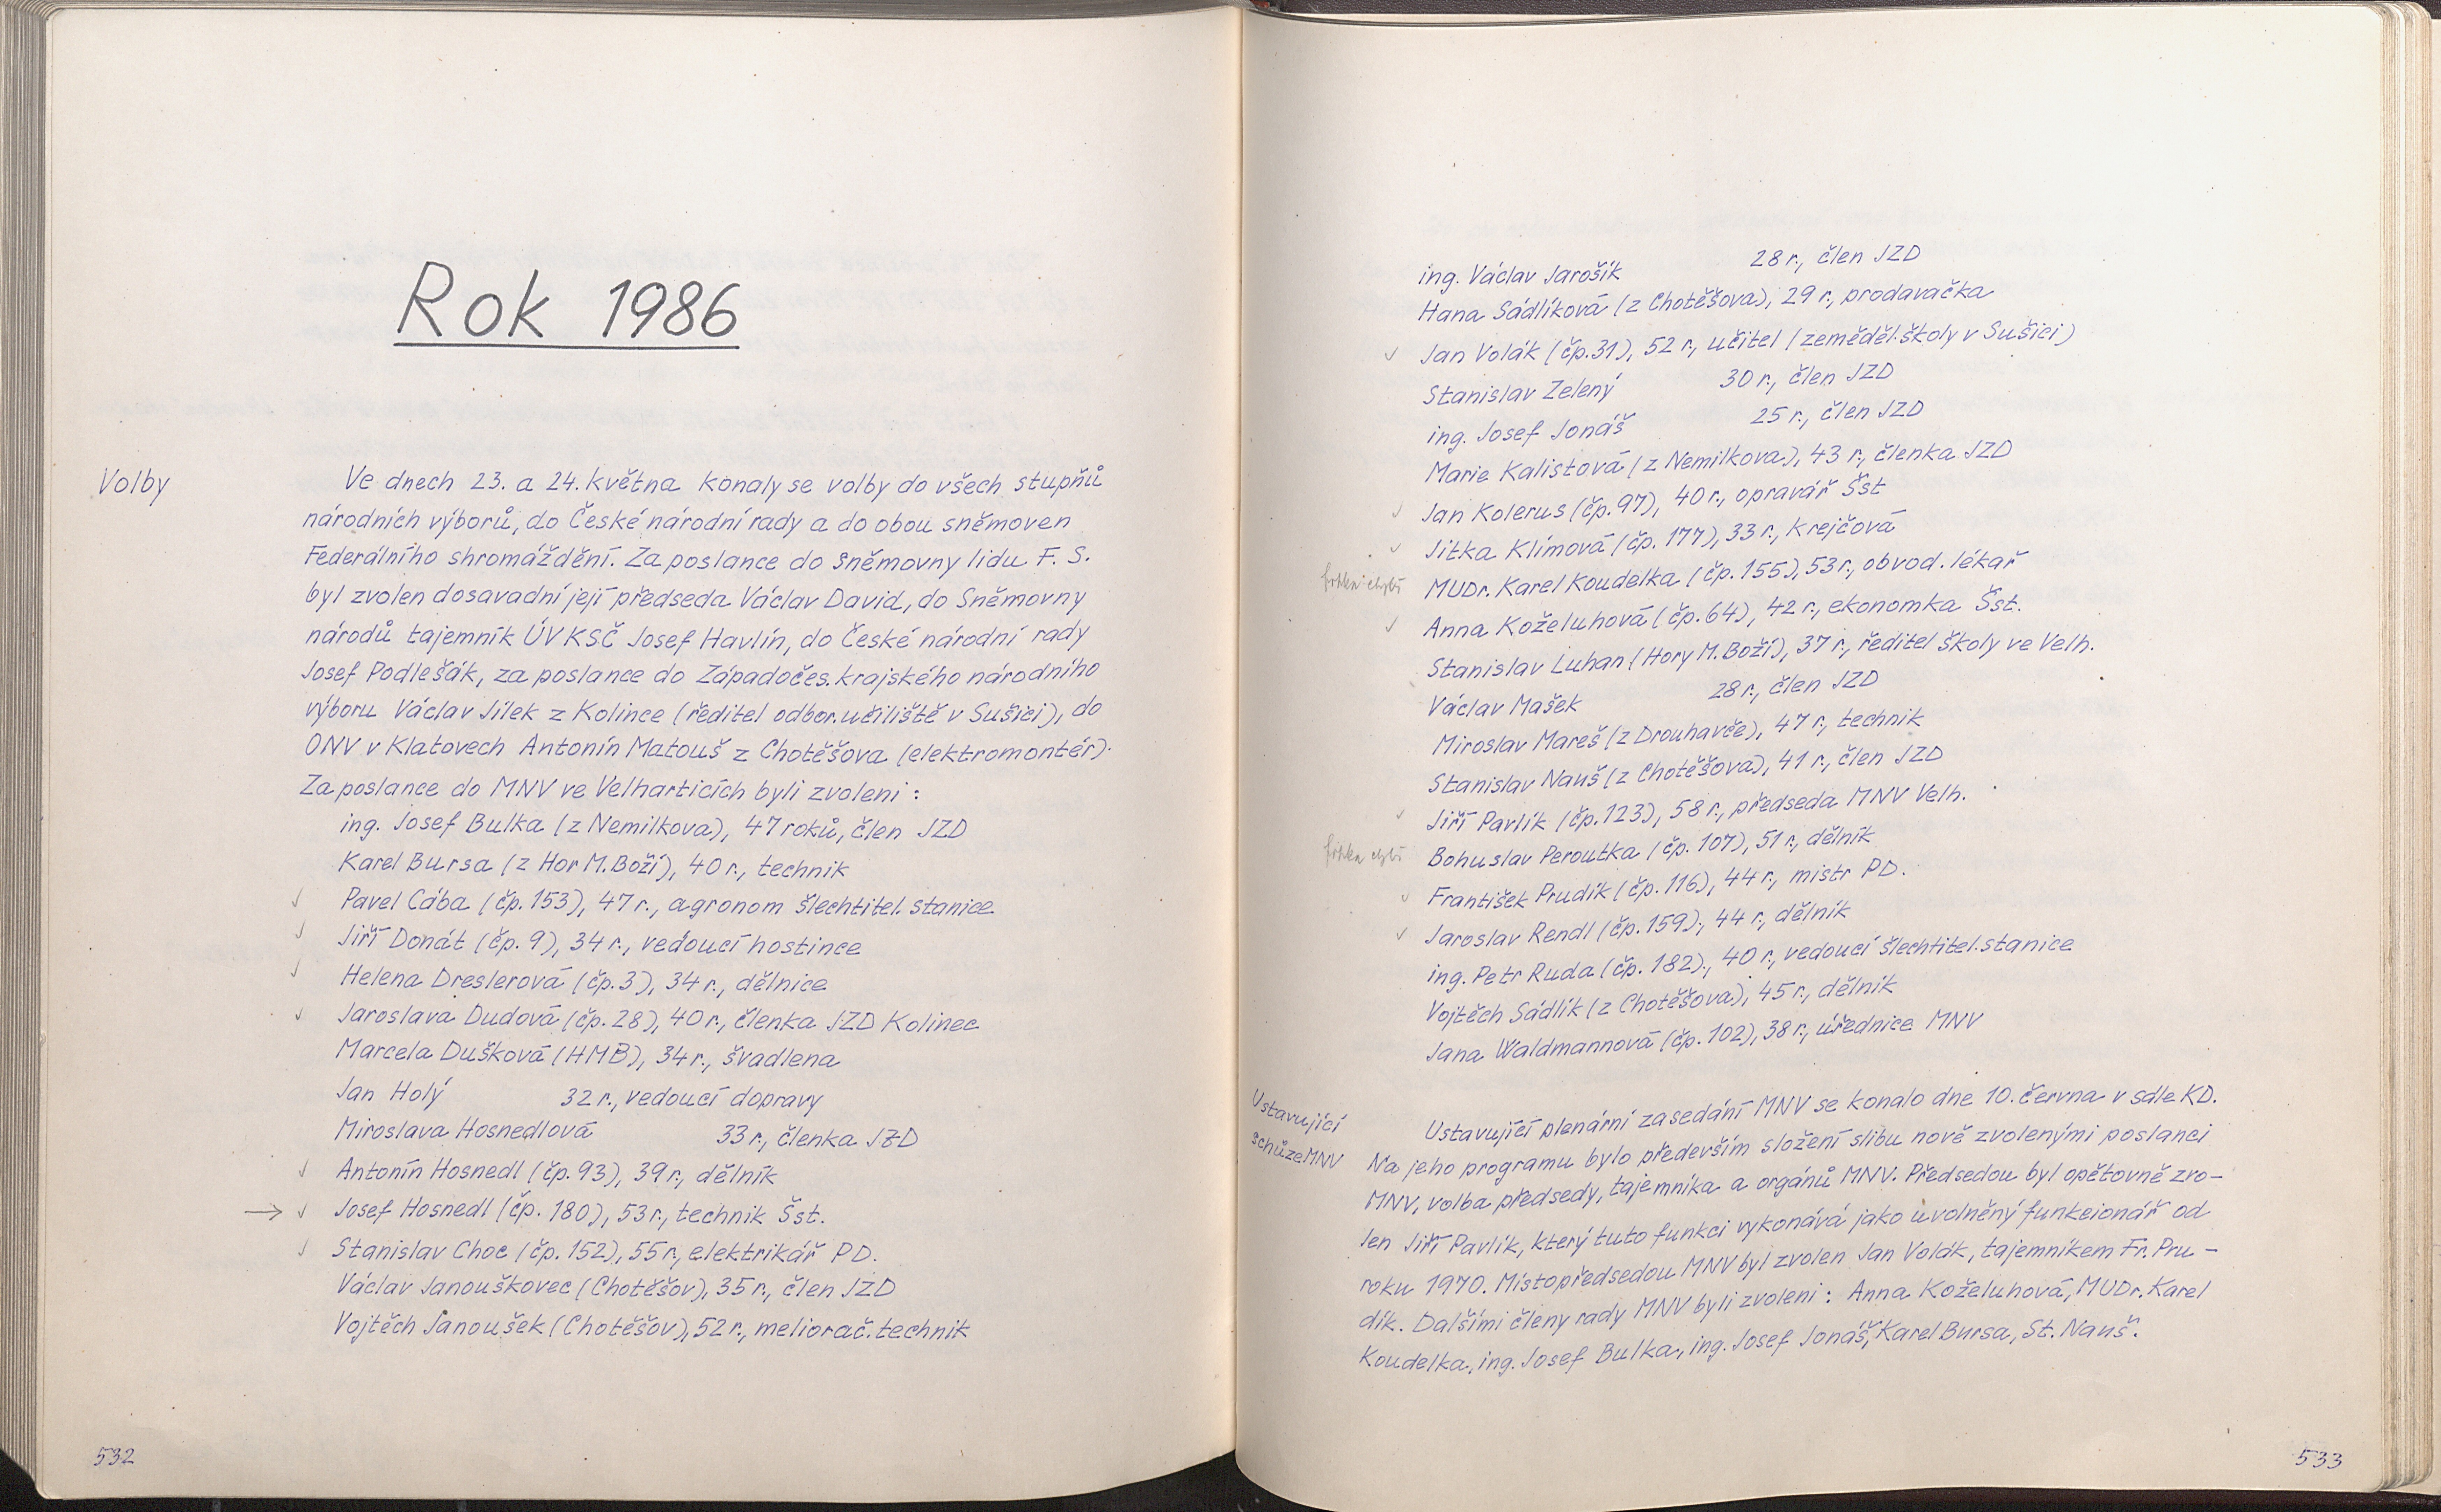 Rok 1986
Volby
Ve dnech 23. a 24. května konaly se volby do všech stupňů
národních výborů, do České národní rady a do obou sněmoven
Federálního shromáždění. Za poslance do Sněmovny lidu F. S.
byl zvolen dosavadní její předseda Václav David, do Sněmovny
národů tajemník ÚV KSČ Josef Havlín, do České národní rady
Josef Podlešák, za poslance do Západočes. krajského národního
výboru Václav Jílek z Kolince (ředitel odbor. učiliště v Sušici), do
ONV v Klatovech Antonín Matouš z Chotěšova (elektromontér).
Za poslance do MNV ve Velharticích byli zvoleni:
ing. Josef Bulka (z Nemilkova), 47 roků, člen JZD
Karel Bursa (z Hor M. Boží), 40 r., technik
✓ Pavel Cába (čp. 153), 47 r., agronom šlechtitel. stanice
✓ Jiří Donát (čp. 9), 34 r., vedoucí hostince
✓ Helena Dreslerová (čp. 3), 34 r., dělnice
✓ Jaroslava Dudová (čp. 28), 40 r., členka JZD Kolinec
Marcela Dušková (HMB), 34 r., švadlena
Jan Holý 32 r., vedoucí dopravy
Miroslava Hosnedlová 33 r., členka JZD
✓ Antonín Hosnedl (čp. 93), 39 r., dělník
→ ✓ Josef Hosnedl (čp. 180), 53 r., technik Šst.
✓ Stanislav Choc (čp. 152), 55 r., elektrikář PD.
Václav Janouškovec (Chotěšov), 35 r., člen JZD
Vojtěch Janoušek (Chotěšov), 52 r., meliorač. technik
532
ing. Václav Jarošík 28 r., člen JZD
Hana Sádlíková (z Chotěšova), 29 r., prodavačka
✓ Jan Volák (čp. 31), 52 r., učitel (zeměděl. školy v Sušici)
Stanislav Zelený 30 r., člen JZD
ing. Josef Jonáš 25 r., člen JZD
Marie Kalistová (z Nemilkova), 43 r., členka JZD
✓ Jan Kolerus (čp. 97), 40 r., opravář Šst
✓ Jitka Klímová (čp. 177), 33 r., krejčová
MUDr. Karel Koudelka (čp. 155), 53 r., obvod. lékař
✓ Anna Koželuhová (čp. 64), 42 r., ekonomka Šst.
Stanislav Luhan (Hory M. Boží), 37 r., ředitel školy ve Velh.
Václav Mašek 28 r., člen JZD
Miroslav Mareš (z Drouhavče), 47 r., technik
Stanislav Nauš (z Chotěšova), 41 r., člen JZD
✓ Jiří Pavlík (čp. 123), 58 r., předseda MNV Velh.
Bohuslav Peroutka (čp. 107), 51 r., dělník
✓ František Prudík (čp. 116), 44 r., mistr PD.
✓ Jaroslav Rendl (čp. 159), 44 r., dělník
ing. Petr Ruda (čp. 182), 40 r., vedoucí šlechtitel. stanice
Vojtěch Sádlík (z Chotěšova), 45 r., dělník
Jana Waldmannová (čp. 102), 38 r., úřednice MNV
Ustavující
schůze MNV
Ustavující plenární zasedání MNV se konalo dne 10. června v sále KD.
Na jeho programu bylo především složení slibu nově zvolenými poslanci
MNV, volba předsedy, tajemníka a orgánů MNV. Předsedou byl opětovně zvo-
len Jiří Pavlík, který tuto funkci vykonává jako uvolněný funkcionář od
roku 1970. Místopředsedou MNV byl zvolen Jan Volák, tajemníkem Fr. Pru-
dík. Dalšími členy rady MNV byli zvoleni: Anna Koželuhová, MUDr. Karel
Koudelka, ing. Josef Bulka, ing. Josef Jonáš, Karel Bursa, St. Nauš.
533